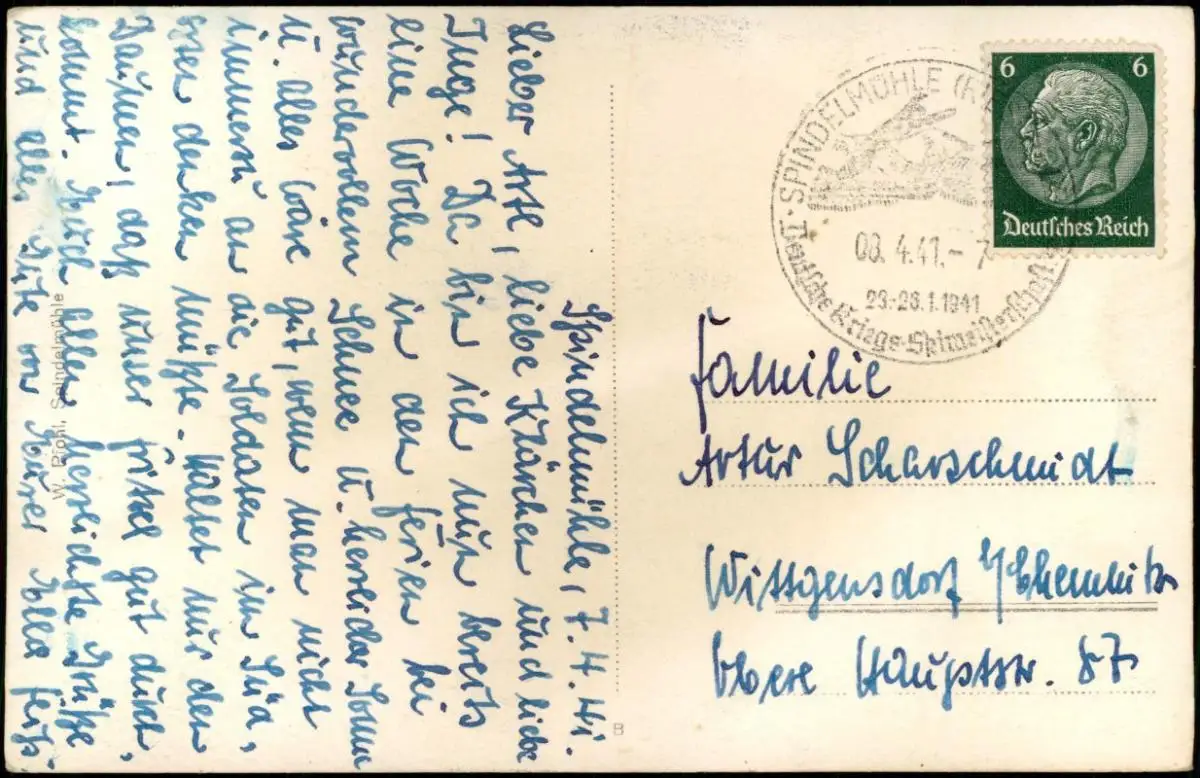 Spindelmühle, 7. 4. 41.
Lieber Arti, liebe Klärchen und liebe
Inge! Da bin ich nun bereits
eine Woche in den Ferien bei
wundervollem Schnee u. herrlicher Sonne
u. alles wäre gut, wenn man nicht
immerzu an die Soldaten im Süd,
osten denken müßte. Haltet nur den
Daumen, daß unser Fritzel gut durch,
kommt. Euch allen herzlichste Grüße
und alles Gute von Eurer Ella
W. Pfohl, Spindelmühle
B
SPINDELMÜHLE
08.4.41.-7
23.-26.1.1941
Deutsche Kriegs-Skimeisterschaft
6 6
Deutsches Reich
Familie
Artur Scharschmidt
Wittgensdorf b/Chemnitz
Obere Hauptstr. 87